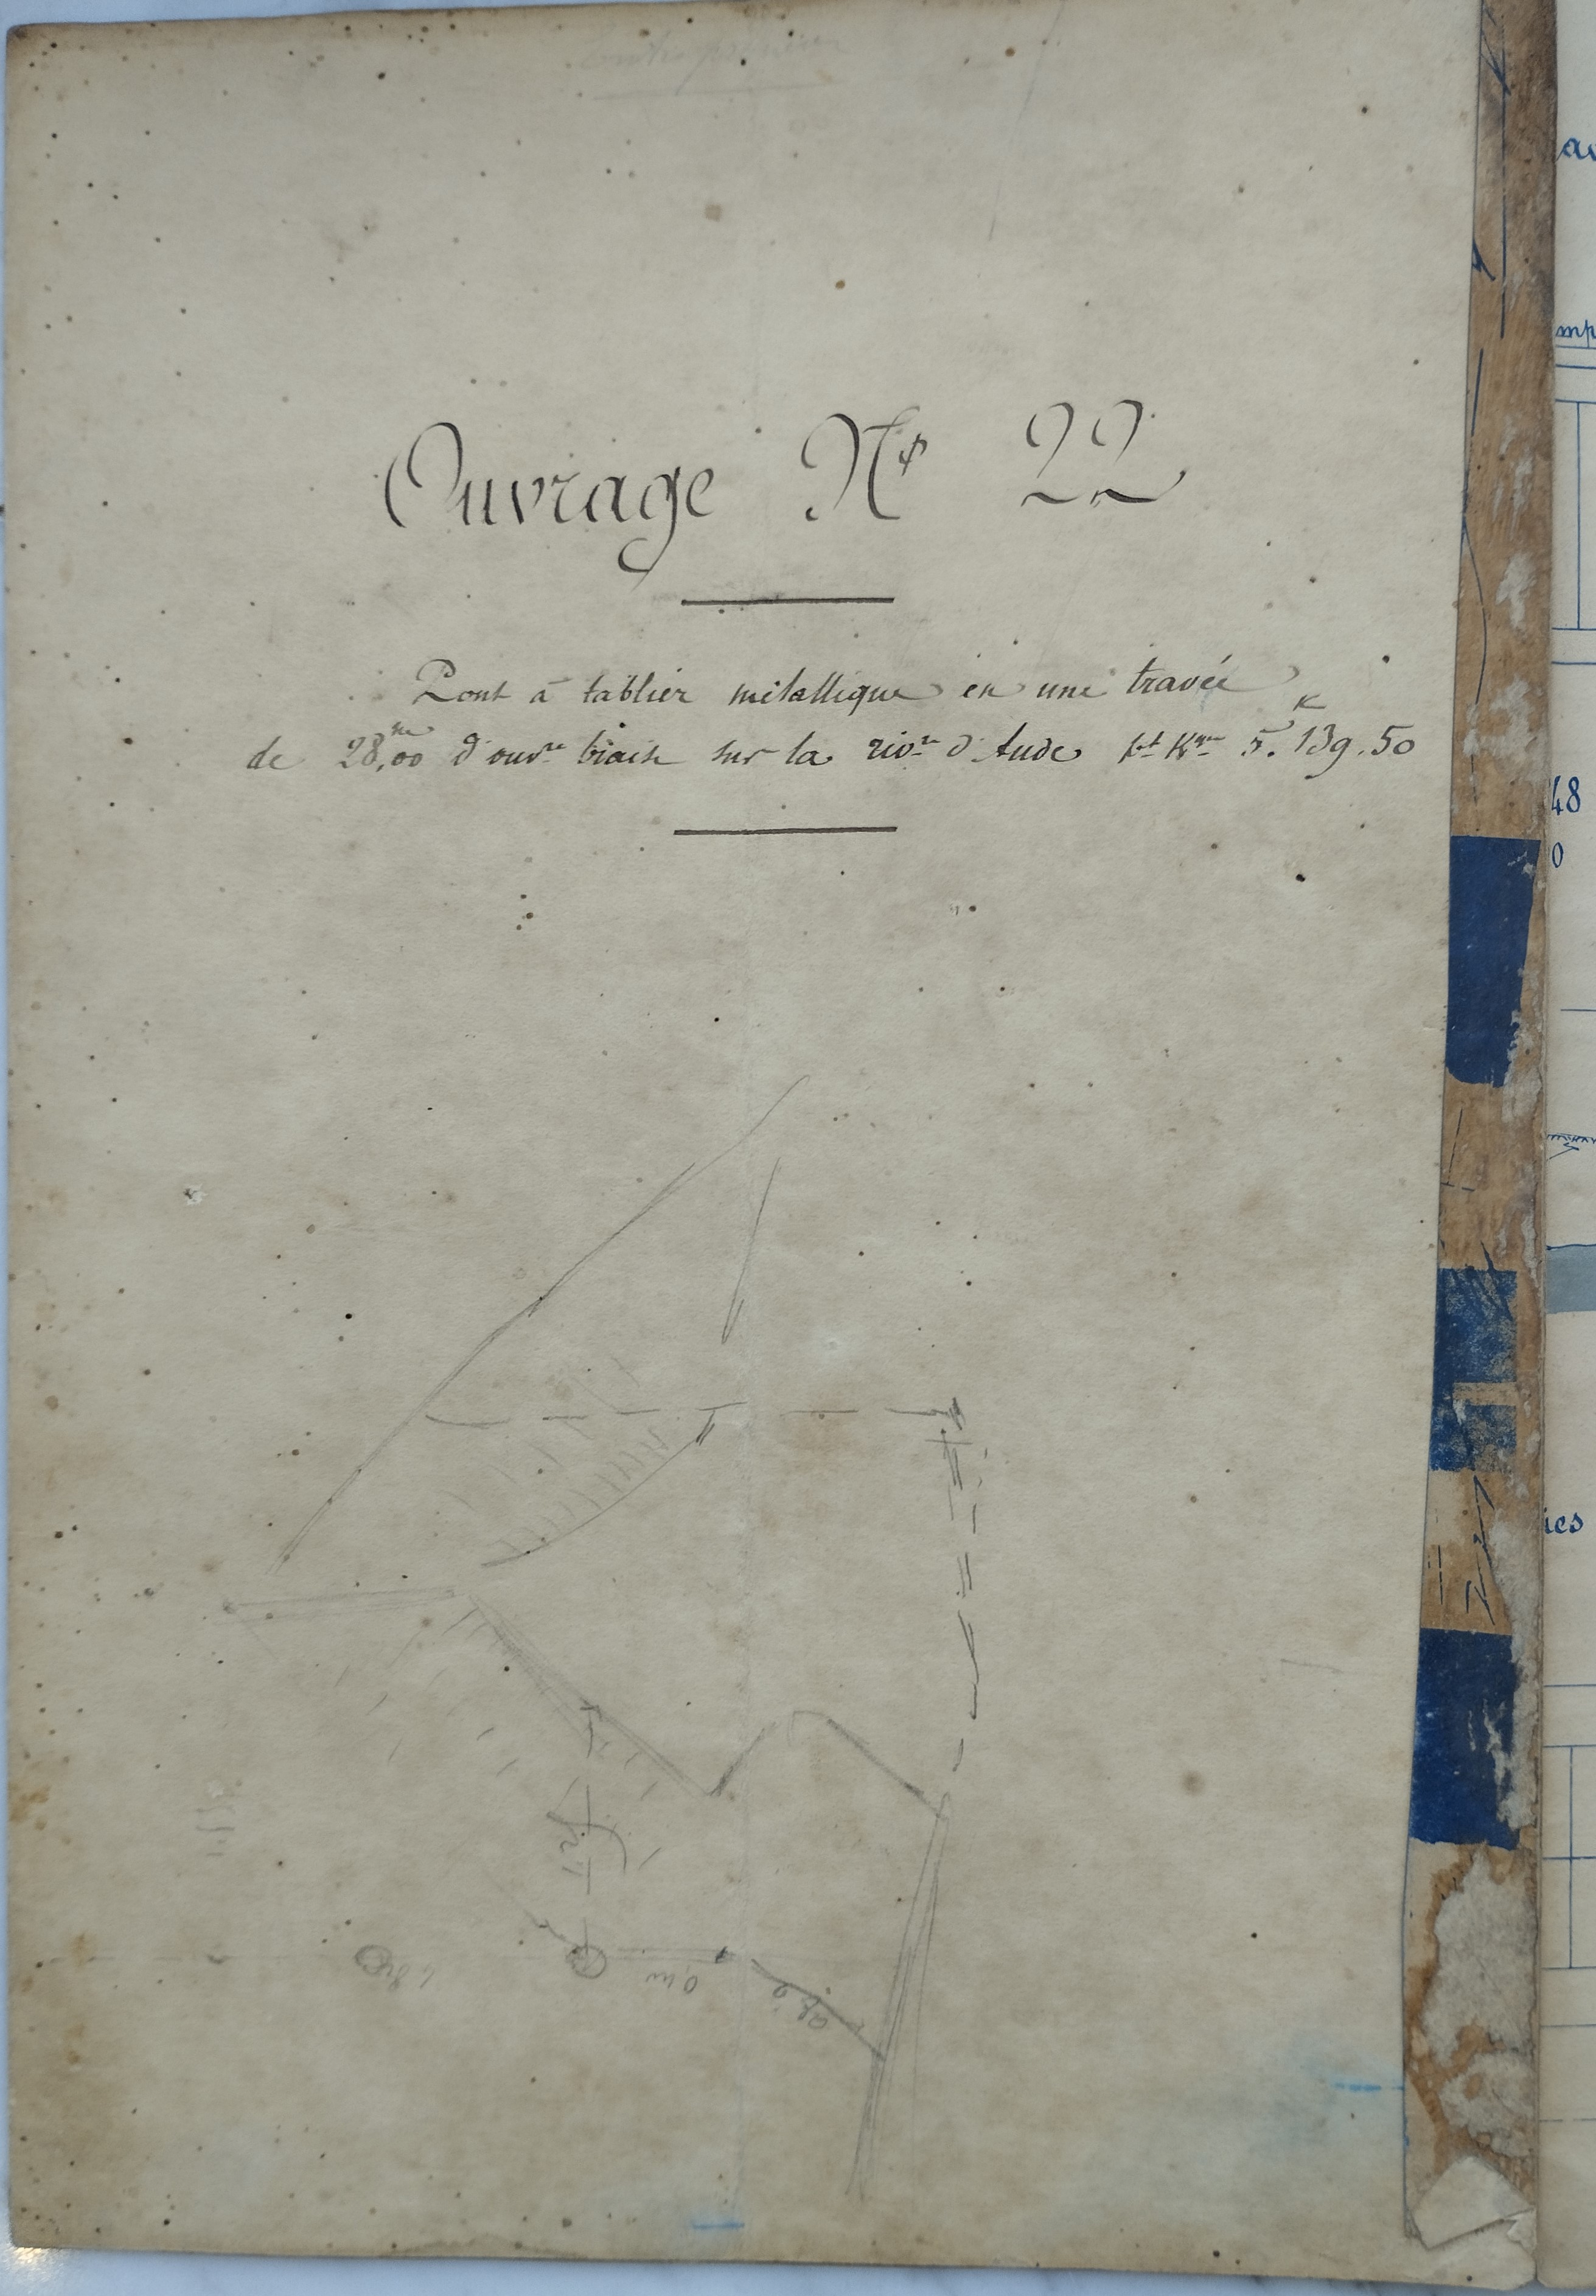 Ouvrage N° 22
Pont à tablier métallique en une travée
de 28,m00 d'ouvre biaise sur la rivre d'Aude pt Kque 5.K139.50
av
48
0
ies